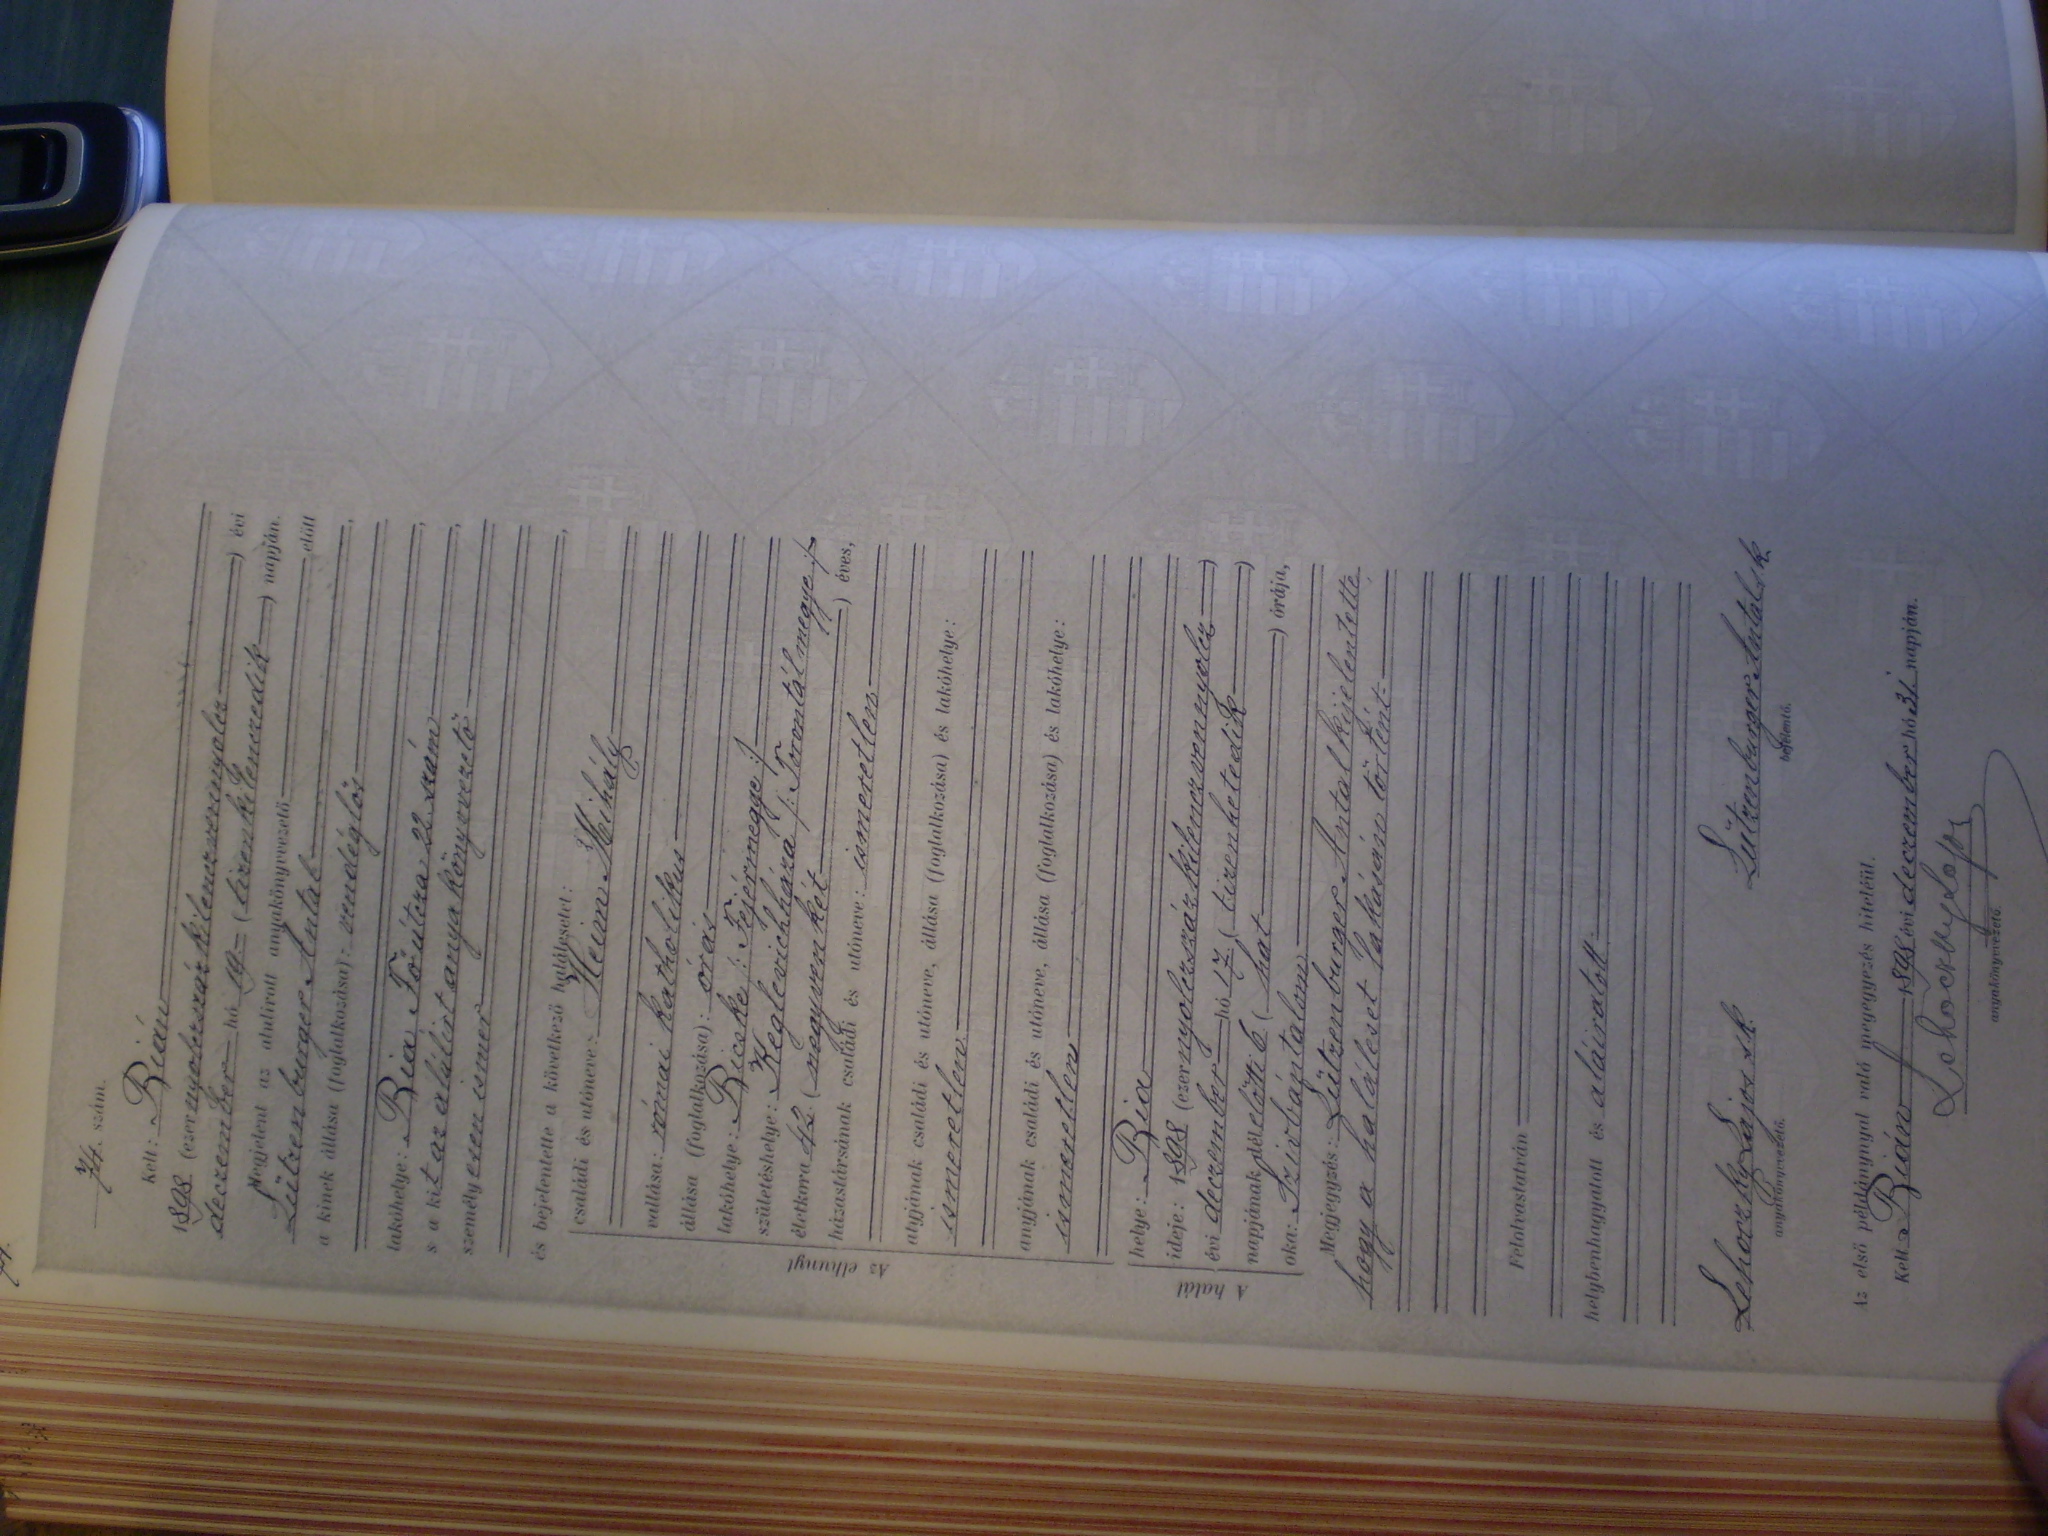 74. szám.
Kelt: Bián
1898 (ezernyolcszázkilenczvennyolcz) évi
deczember hó 19= (tizenkilenczedik) napján.
Megjelent az alulirott anyakönyvvezető előtt
Lützenburger Antal
a kinek állása (foglalkozása): vendéglős,
lakóhelye: Bia Főútcza 22. szám,
s a kit az aláirt anyakönyvvezető,
személyesen ismer
és bejelentette a következő halálesetet:
családi és utóneve: Heim Mihály
vallása: római katholikus
állása (foglalkozása): órás
lakóhelye: Bicske /: Fejérmegye :/
születéshelye: Keglevichháza /: Torontálmegye :/
életkora 42 (negyvenkét) éves,
házastársának családi és utóneve: ismeretlen
atyjának családi és utóneve, állása (foglalkozása) és lakóhelye:
ismeretlen
anyjának családi és utóneve, állása (foglalkozása) és lakóhelye:
ismeretlen
Az elhunyt
helye: Bia
ideje: 1898 (ezernyolcszázkilenczvennyolcz)
évi deczember hó 17. (tizenhetedik)
napjának délelőtti 6 (hat) órája,
oka: Szivbántalom
A halál
Megjegyzés: Lützenburger Antal kijelentette
hogy a haláleset lakásán történt.
Felolvastatván
helybenhagyatott és aláiratott.
Lehoczky Lajos sk. Lützenburger Antal sk
anyakönyvvezető. bejelentő.
Az első példánynyal való megegyezés hiteléül.
Kelt Bián 1898 évi deczember hó 31. napján.
Lehoczky Lajos
anyakönyvvezető.